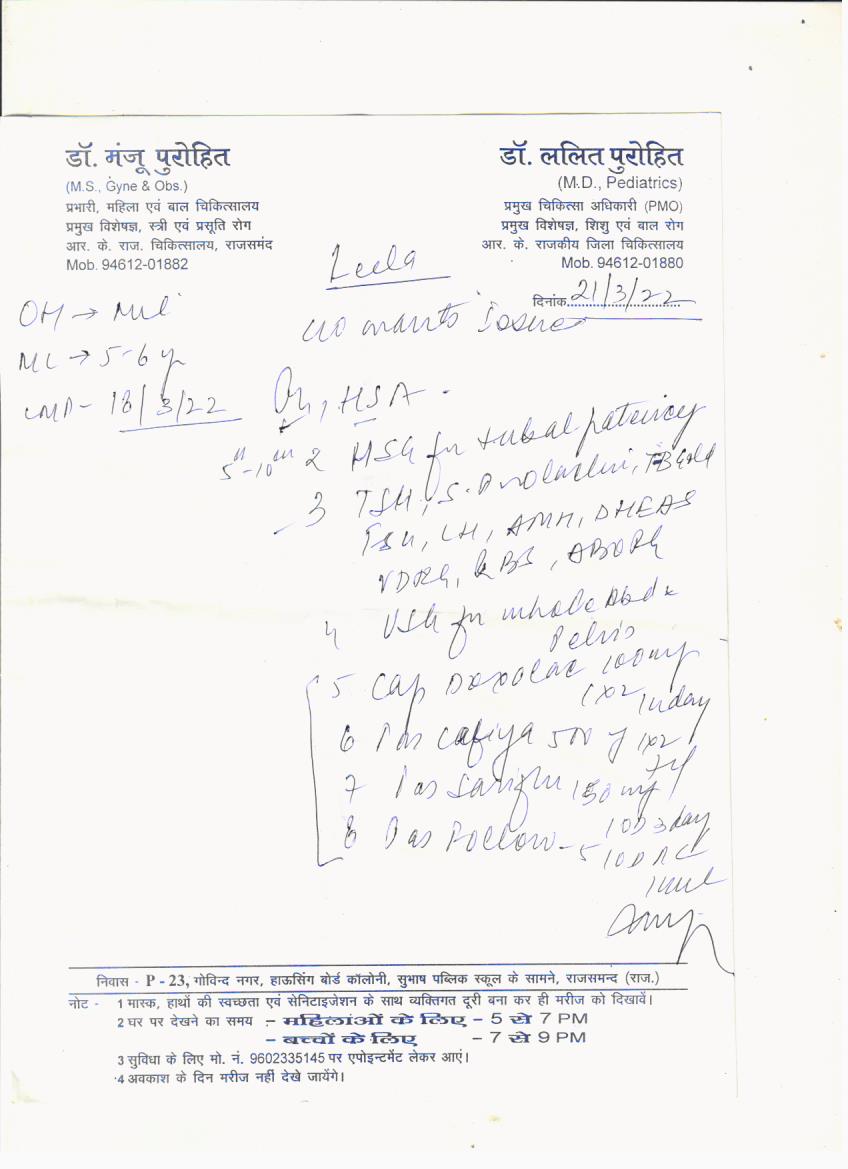 डॉ. मंजू पुरोहित
(M.S., Gyne & Obs.)
प्रभारी, महिला एवं बाल चिकित्सालय
प्रमुख विशेषज्ञ, स्त्री एवं प्रसूति रोग
आर. के. राज. चिकित्सालय, राजसमंद
Mob. 94612-01882
डॉ. ललित पुरोहित
(M.D., Pediatrics)
प्रमुख चिकित्सा अधिकारी (PMO)
प्रमुख विशेषज्ञ, शिशु एवं बाल रोग
आर. के. राजकीय जिला चिकित्सालय
Mob. 94612-01880
दिनांक 21/3/22
Leela
OH → Nil
ML → 5-6 y
LMP - 18/3/22
c/o wants issue
HSA -
5th-10th 2 HSG for tubal patency
3 TSH, S. Prolactin, TB Gold
LH, AMH, DHEAS
VDRL, RBS, ABORh
4 USG for whole Abd &
Pelvis
5 Cap 100mg
1x2 14day
6 500 1x2
7 150 mg
1OD 3day
8 - 5 1OD
निवास - P - 23, गोविन्द नगर, हाऊसिंग बोर्ड कॉलोनी, सुभाष पब्लिक स्कूल के सामने, राजसमन्द (राज.)
नोट - 1 मास्क, हाथों की स्वच्छता एवं सेनिटाइजेशन के साथ व्यक्तिगत दूरी बना कर ही मरीज को दिखावें।
2 घर पर देखने का समय :- महिलाओं के लिए - 5 से 7 PM
- बच्चों के लिए - 7 से 9 PM
3 सुविधा के लिए मो. नं. 9602335145 पर एपोइन्टमेंट लेकर आएं।
4 अवकाश के दिन मरीज नहीं देखे जायेंगे।